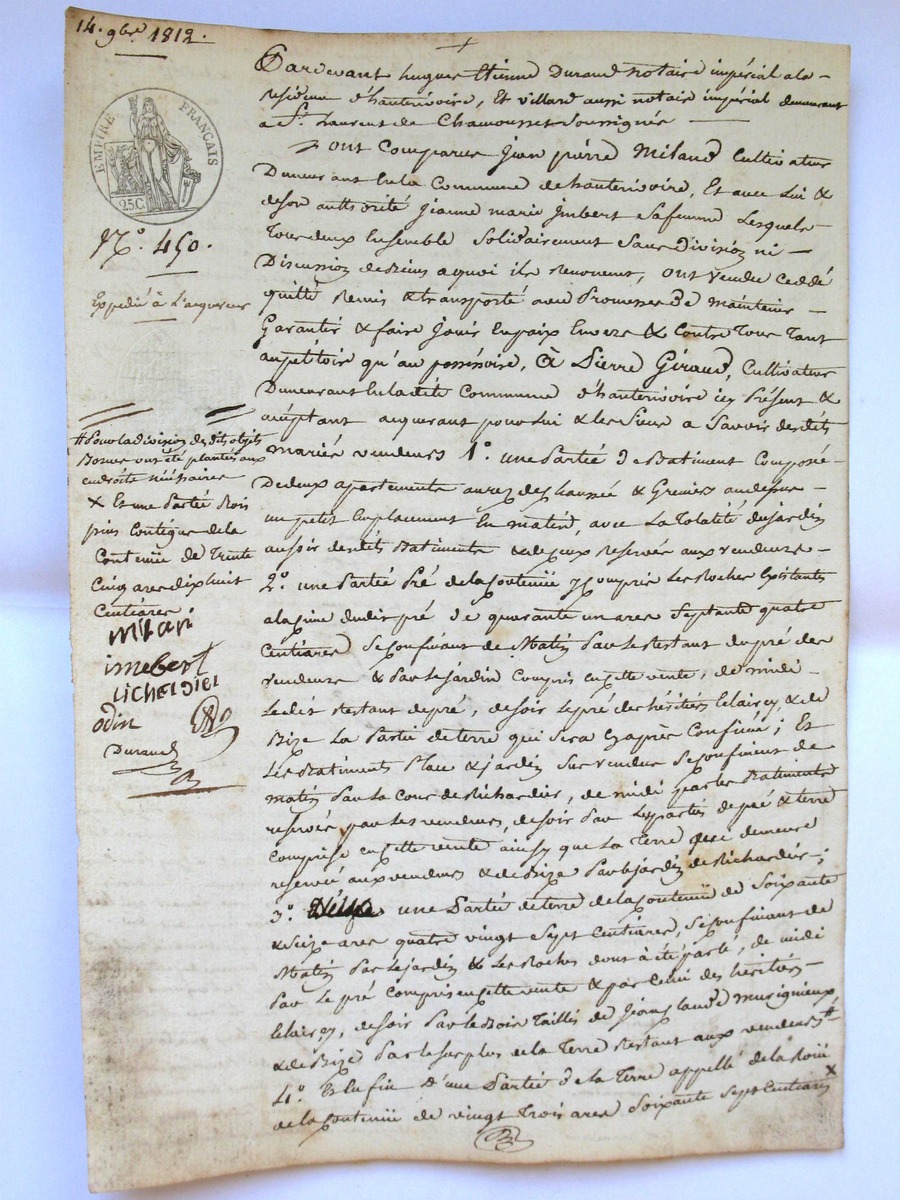 14. 9bre 1812.
EMPIRE FRANÇAIS
25C.
N.º 450.
Expédié à L'acquereur
Pardevant hugues Etienne Durand notaire impérial a la
residence d'hauterivoire, Et villard aussi notaire impérial demeurant
a St. Laurent de Chamousset Soussignés
ont Comparus Jean pierre Miland Cultivateur
Demeurant En la Commune de hauterivoire, Et avec Lui &
de son authorité Jeanne marie Imbert Sa femme Lesquels
Tous deux Ensemble Solidairement Sans Division ni
Discussion de biens a quoi ils Renoncent, ont vendu Ceddé
quitté Remis & transporté avec Promesse de maintenir
Garantir & faire Jouir En paix Envers & Contre Tous Tant
au pétitoire qu'au possessoire, à Pierre Giraud, Cultivateur
Demeurant En la dité Commune d'hauterivoire icy Présent &
acceptant acquerant pour Lui & les Siens a Savoir desdits
mariés vendeurs 1.º une Partie de Batiment Composé
De deux apartements au rez de chaussée & Greniers au dessus
un petit Emplacement En matin, avec La Totalité du jardin
au soir desdits Batiments & de ceux reservés aux vendeurs
2.º une Partie Pré de la Contenue y Compris Les Rocher Existants
a la cime dudit pré de quarante un ares Septante quatre
Centiares Se Confinant de Matin Par Le restant du pré des
vendeurs & Par Le jardin Compris en cette vente, de midi
Le dit restant de pré, de soir Le pré des héritiers Clairey, & de
Bize La Partie de terre qui Sera Cy après Confinée; Et
Les Batiments Place & jardin Sus vendus Se Confinent de
matin Par La Cour de Richardier, de midi par les Batiments
reservés par Les vendeurs, de soir Par Les parties de pré & terre
Comprise en cette vente ainsy que La Terre qui demeure
reservée aux vendeurs & de Bize Par le jardin de Richardier;
3.º une Partie de terre de la Contenue de Soixante
& Seize ares quatre vingt Sept Centiares, Se Confinant de
Matin Par Le jardin & Les Roches dont à été parlé, de midi
Par Le pré Compris en cette vente & par Celui des héritiers
Clairey, de soir Par Le Bois Taillis de Jean Claude Murigneux
& de Bize Par Le Surplus de la Terre Restant aux vendeurs #
4.º Et Enfin d'une Partie de la Terre appellé de la
de la Contenue de vingt Trois ares Soixante Sept Centiares X
# Pour la division desdits objets
Bornes ont été plantés aux
endroits nécéssaires
X Et une Partie Bois
pins Contigue de la
Contenüe de Trente
Cinq ares dix huit
Centiares
milan
imebert
richerdiei
odin
Durand